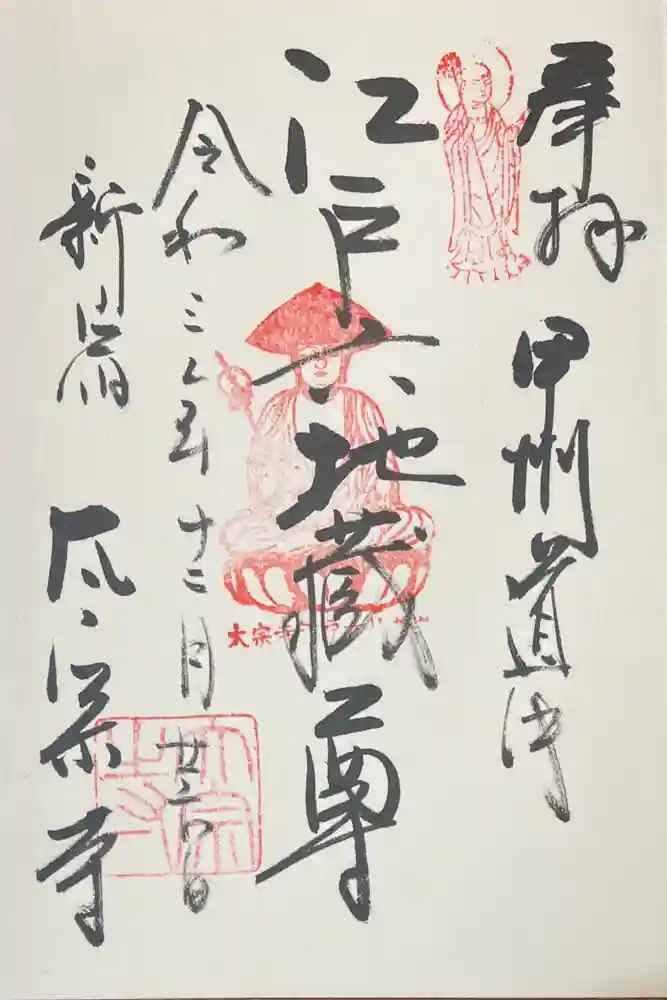 奉拝
甲州道中
江戸六地蔵尊
令和三年十二月廿二日
新宿
太宗寺
太宗寺